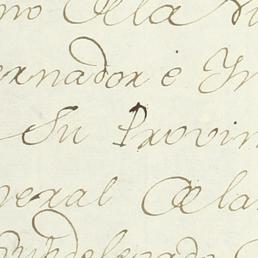 no de la
ernador e Yn
Su Provin
neral de la
Subdelegado